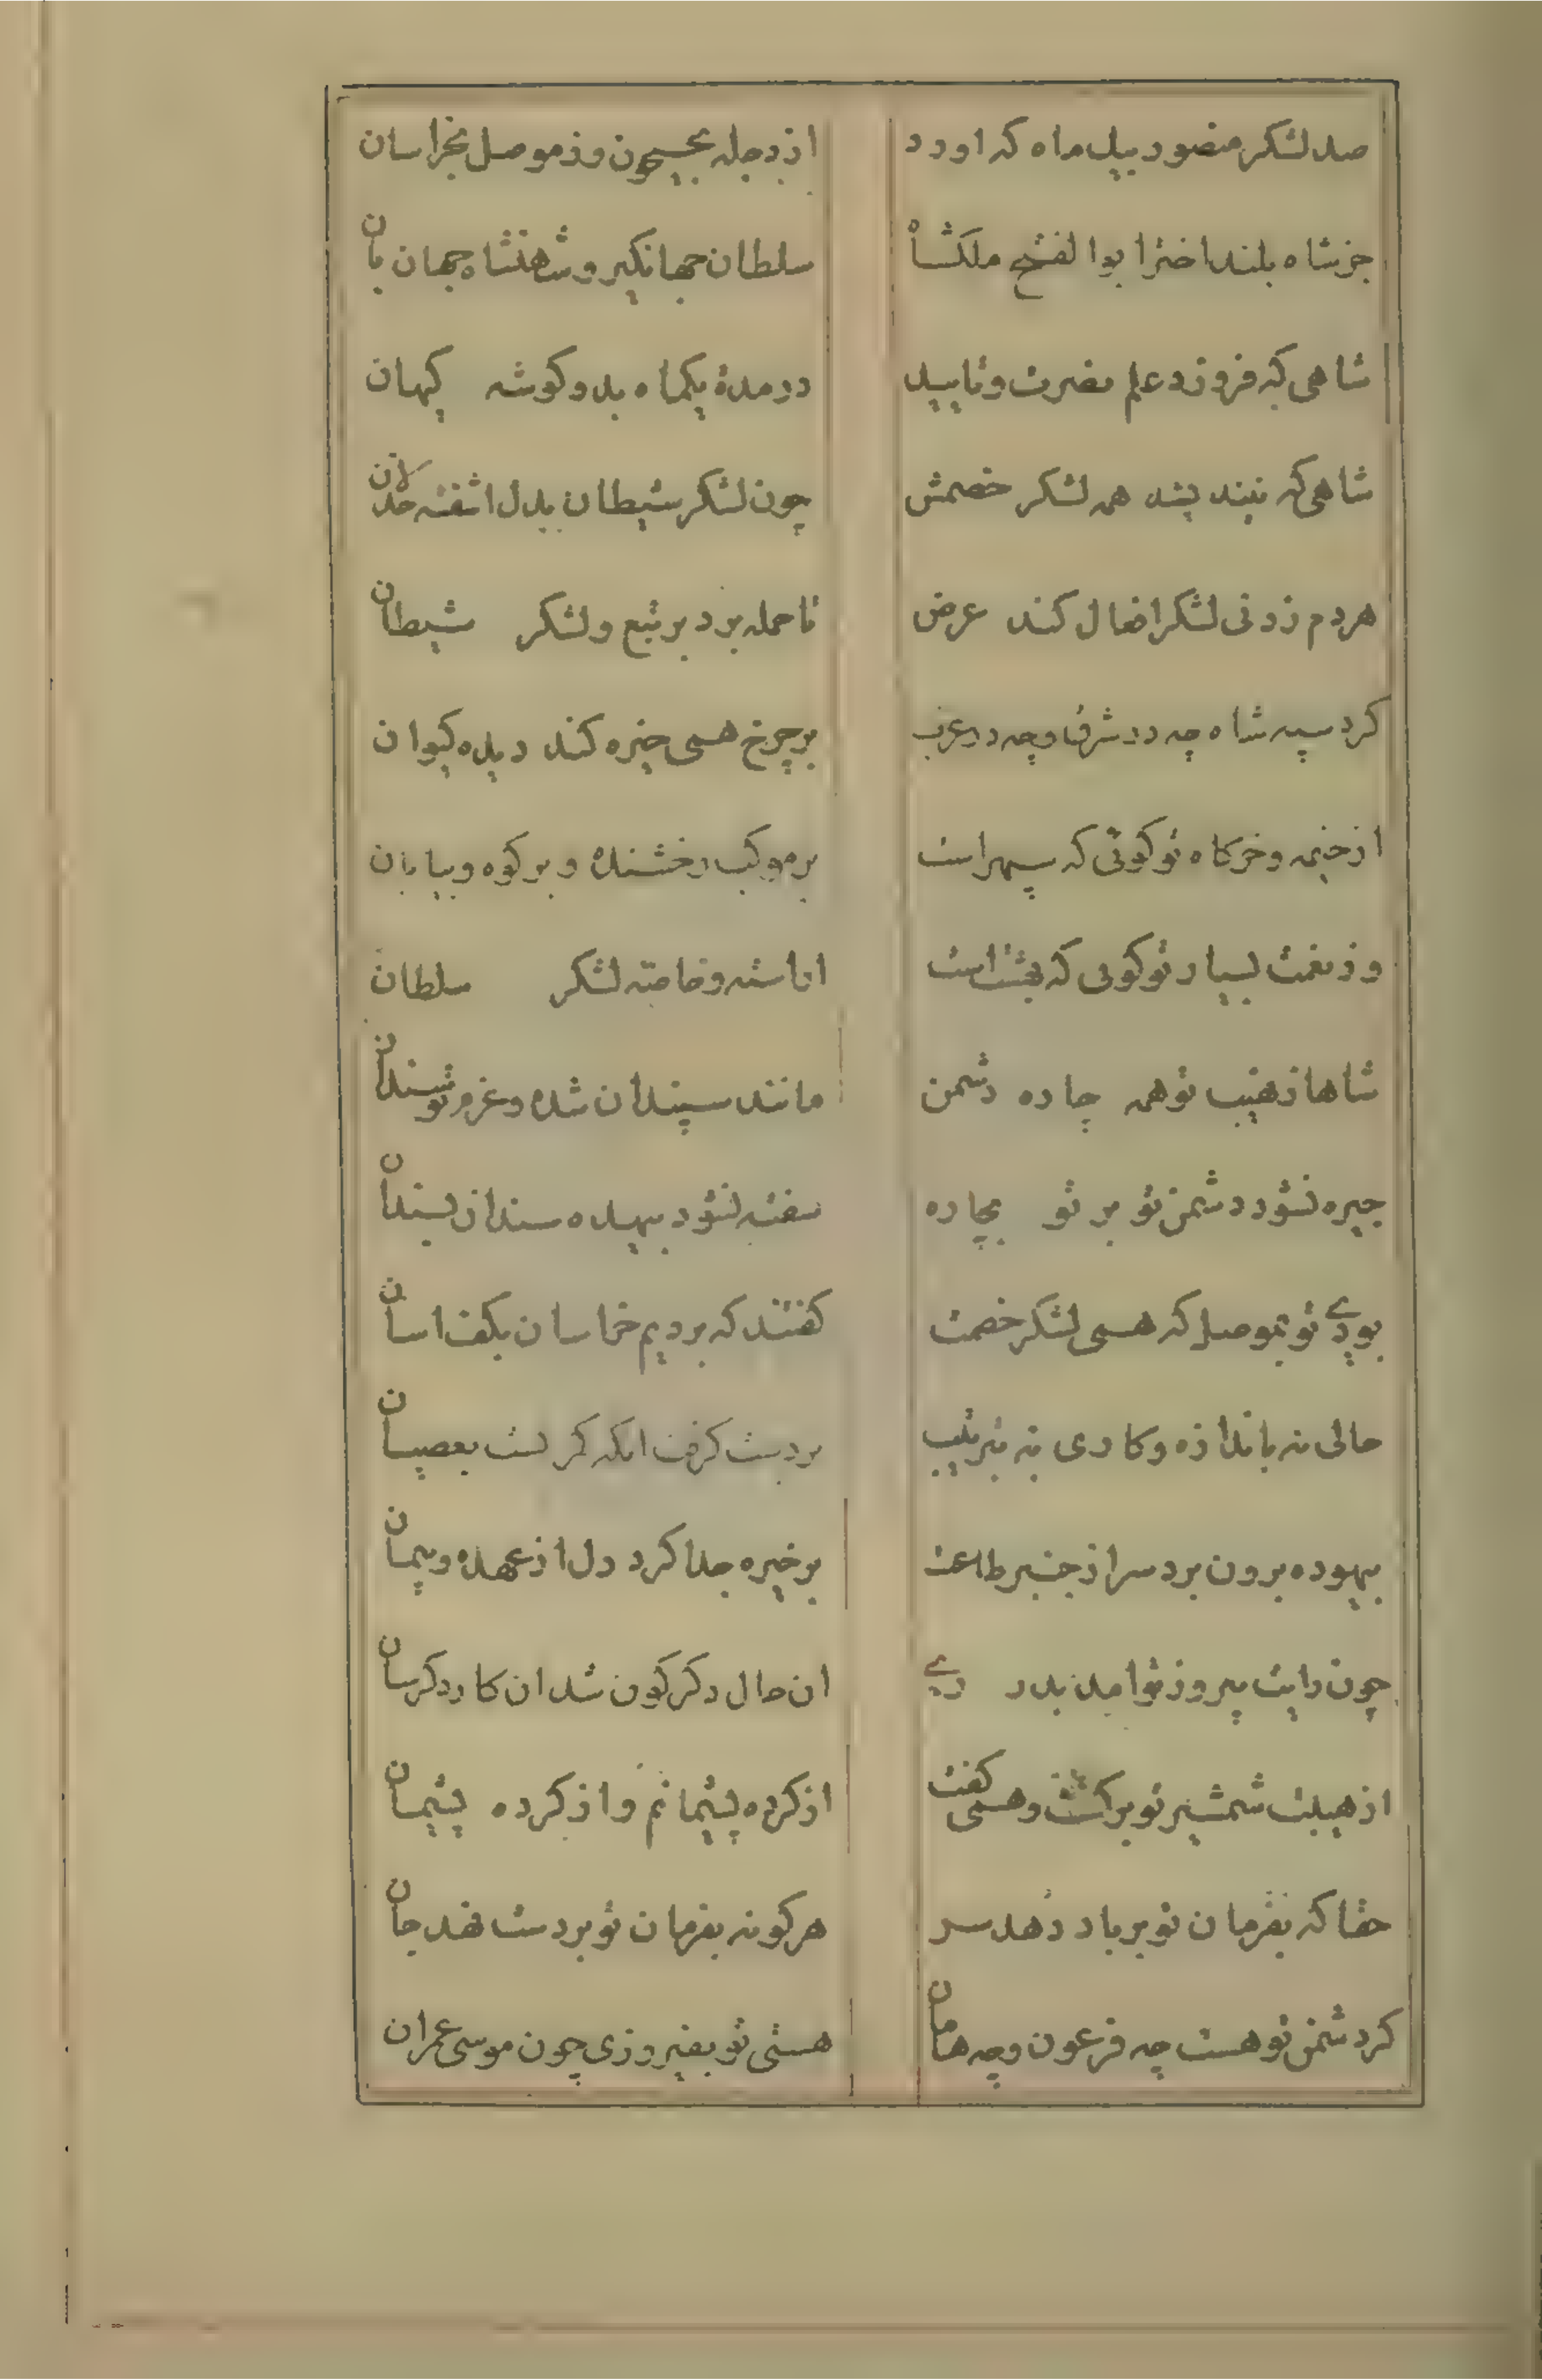 صد لشکر منصور بیک ماه که اورد
از دجله بجیحون وز موصل بخراسان
جز شاه بلند اختر ابوا لفتح ملکشاه
سلطان جهانکیر و شاهنشاه جهان بان
شاهی که فروزد علم نصرت و تایید
در مدة یکماه بدو کوشه کیهان
شاهی که ببند پند همه لشکر خصمش
چون لشکر شیطان بدل اشفته
هر دم زدنی لشکر اقبال کند عرض
تا حمله برد بر تبع و لشکر شیطان
کرد سپه شاه چه در شرق و چه در غرب
بر چرخ همی خیره کند دیده کیوان
از خیمه و خرکاه تو کوئی که سپهر است
بر موکب رخشنده و بر کوه و بیابان
وز نعمت بسیار تو کویی که بهشت است
اراسته و خاصّه لشکر سلطان
شاها ز نهیب تو همه چاره دشمن
مانند سپندان شده و عزم تو سندان
چیره نشود دشمن تو بر تو بچاره
سفته نشود بیهده سندان بسپندان
بودی تو بموصل که همی لشکر خصمت
کفتند که بردیم خراسان بکف اسان
حالی نه باندازه و کاری نه بترتیب
بر دست کرفت انکه کمر بست بعصیان
بیهوده برون برد سر از چنبر طاعت
بر خیره جدا کرد دل از عهده و پیمان
چون رایت پیروز تو امد بدر ری
ان حال دکر کون شد ان کار دکر سان
از هیبت شمشیر تو برکشت و همی کفت
از کرده پشیمانم و از کرده پشیمان
حقا که بفرمان تو بر باد دهد سر
هر کو نه بفرمان تو بر دست نهد جان
کر دشمن تو هست چه فرعون و چه هامان
هستی تو بفیروزی چون موسی عمران